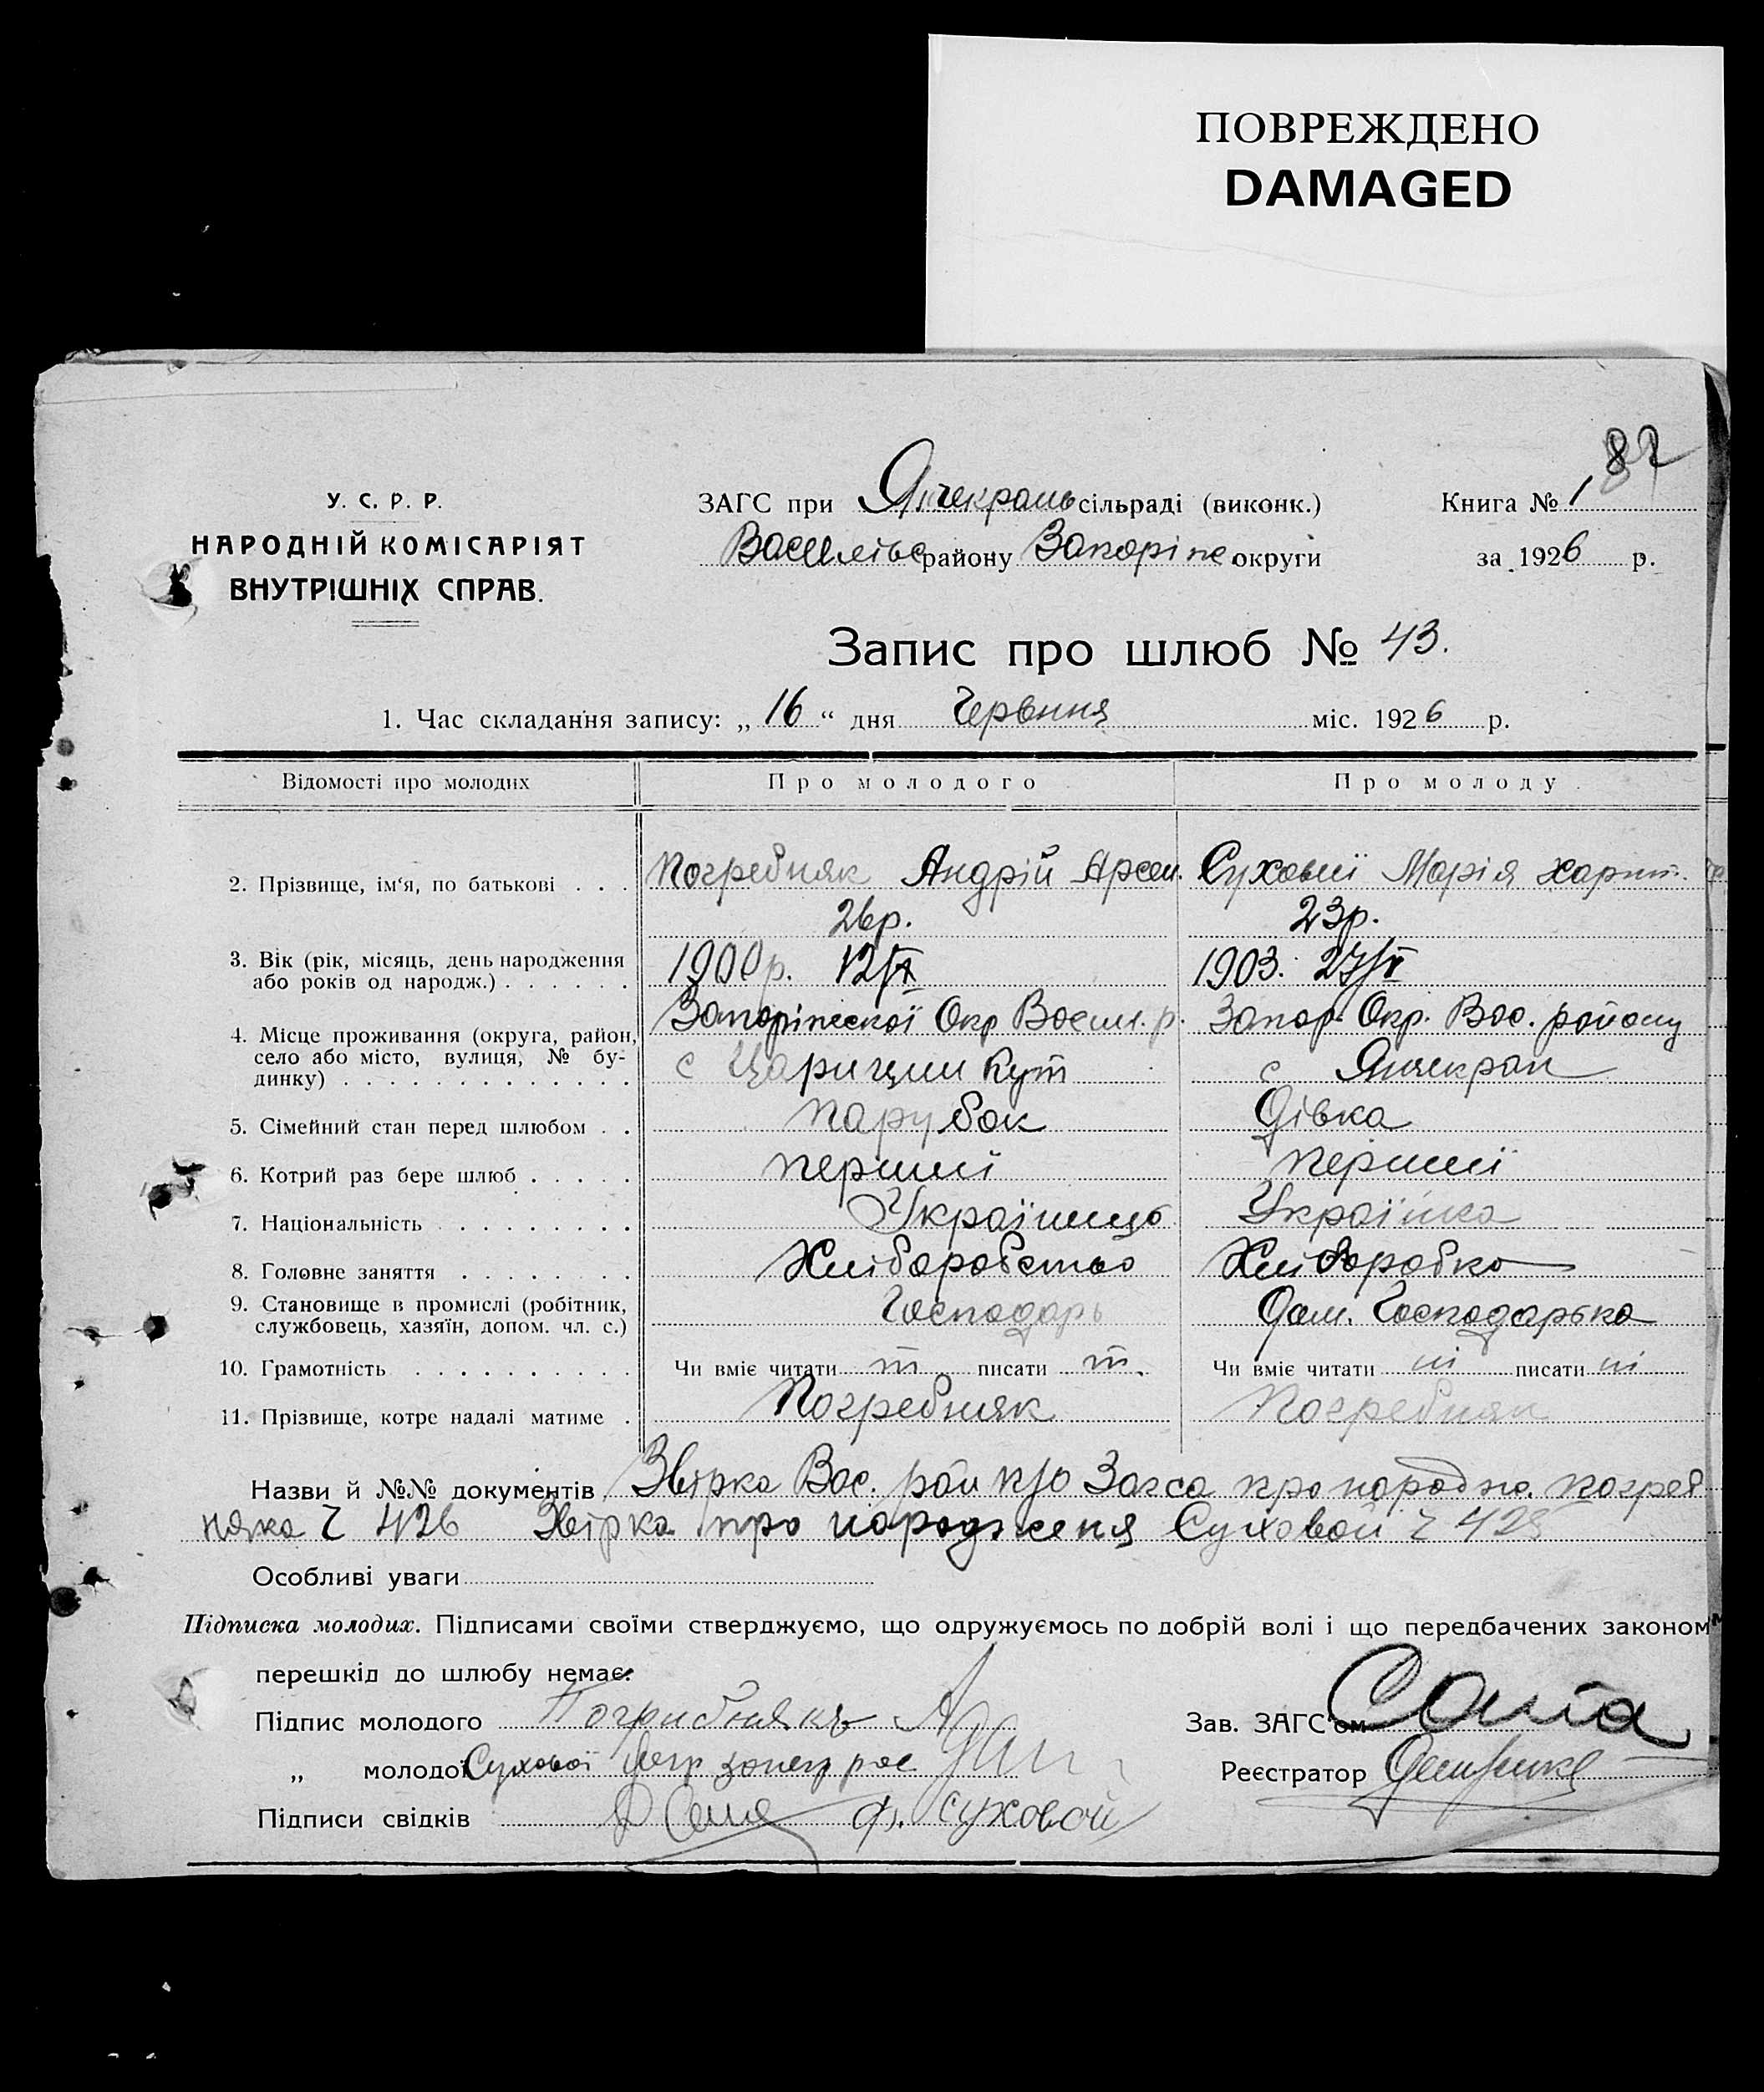 ПОВРЕЖДЕНО
DAMAGED
87
У. С. Р. Р.
НАРОДНІЙ КОМІСАРІЯТ
ВНУТРІШНІХ СПРАВ.
ЗАГС при Янчекрань сільраді (виконк.)
Книга № 1
Василівс району Запоріже округи
за 1926 р.
Запис про шлюб № 43.
1. Час складання запису: „ 16 “ дня Червння міс. 1926 р.
Відомості про молодих
Про молодого
Про молоду
2. Прізвище, ім‘я, по батькові . . .
Погребняк Андрій Арсен.
Суховий Марія Харит.
26р.
23р.
3. Вік (рік, місяць, день народження або років од народж.) . . . . . .
1900р.
1903.
4. Місце проживання (округа, район, село або місто, вулиця, № будинку) . . . . . . . . . . . . .
Запоріжської Окр Васил. р.
с Царицин Кут
Запор. Окр. Вас. району
с Янчекрак
5. Сімейний стан перед шлюбом . .
парубок
дівка
6. Котрий раз бере шлюб . . . . .
перший
перший
7. Національність . . . . . . . .
Українець
Українка
8. Головне заняття . . . . . . . .
Хліборобство
Хліборобка
9. Становище в промислі (робітник, службовець, хазяїн, допом. чл. с.)
Господарь
Дом. Господарька
10. Грамотність . . . . . . . . . .
Чи вміє читати т писати т.
Чи вміє читати ні писати ні
11. Прізвище, котре надалі матиме .
Погребняк
Погребняк
Назви й №№ документів Звірка Вас. рай Загса про народже. Погреб
няка Ч 426 Звірка про народженя Суховой Ч 428
Особливі уваги
Підписка молодих. Підписами своїми стверджуємо, що одружуємось по добрій волі і що передбачених законом
перешкід до шлюбу немає.
Підпис молодого Погрибнякъ А
Зав. ЗАГС‘ом
„ молодої Сухової
Реєстратор
Підписи свідків Ф. Суховой